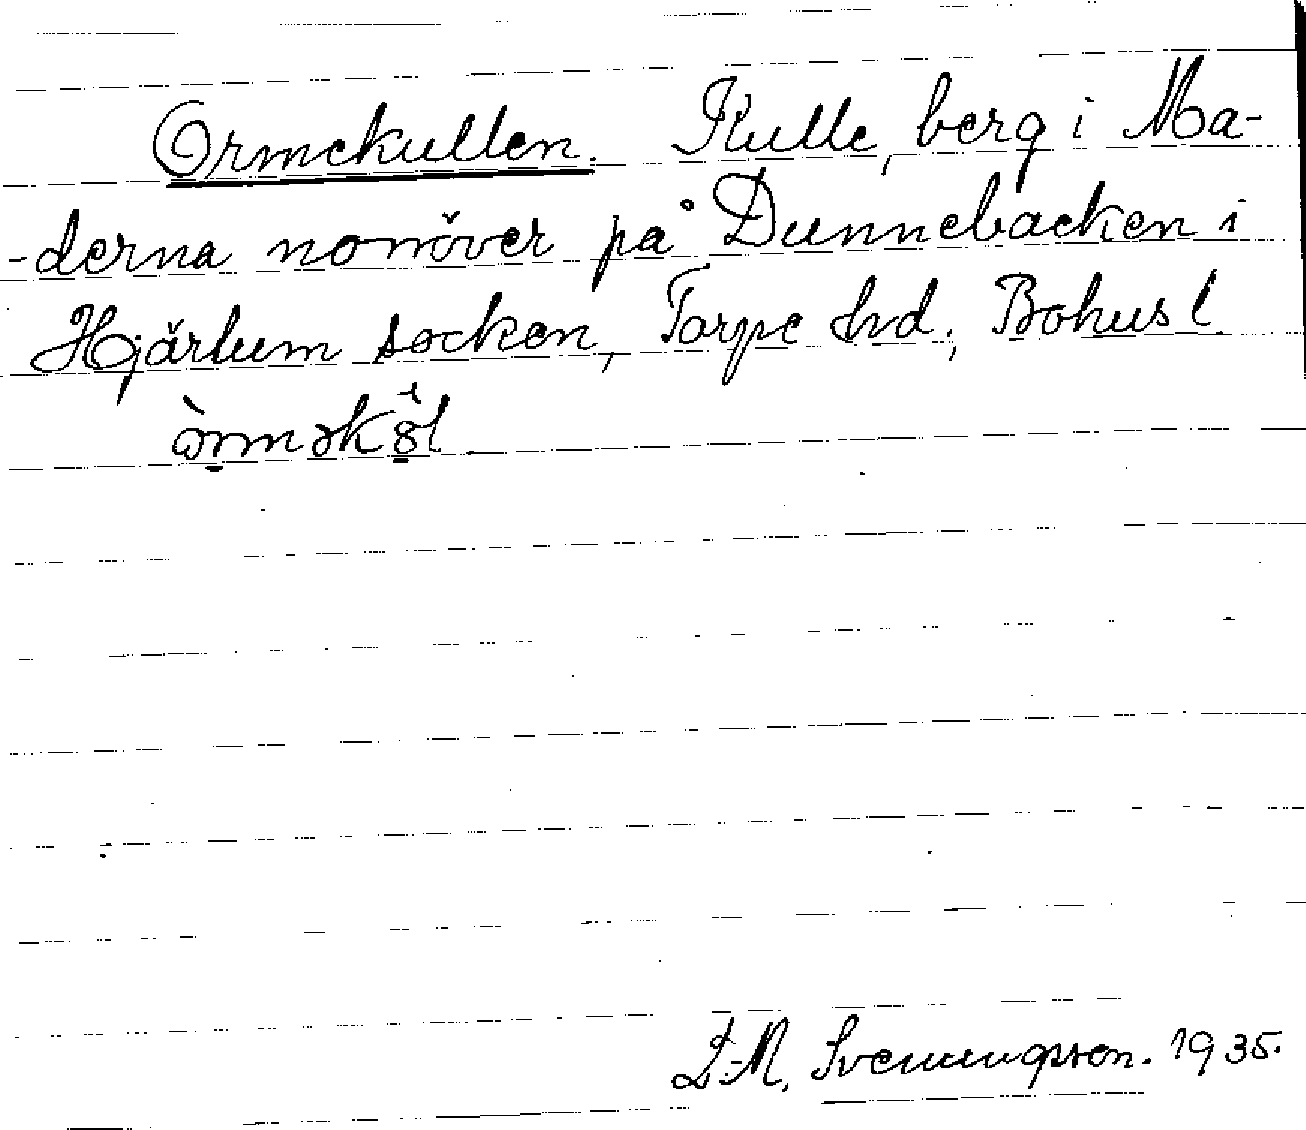 Ormekullen. Kulle, berg i Ma-
-derna norröver på Dunnebacken i
Hjärtum socken, Torpe hrd., Bohusl.
L.M. Svenungsson. 1935.